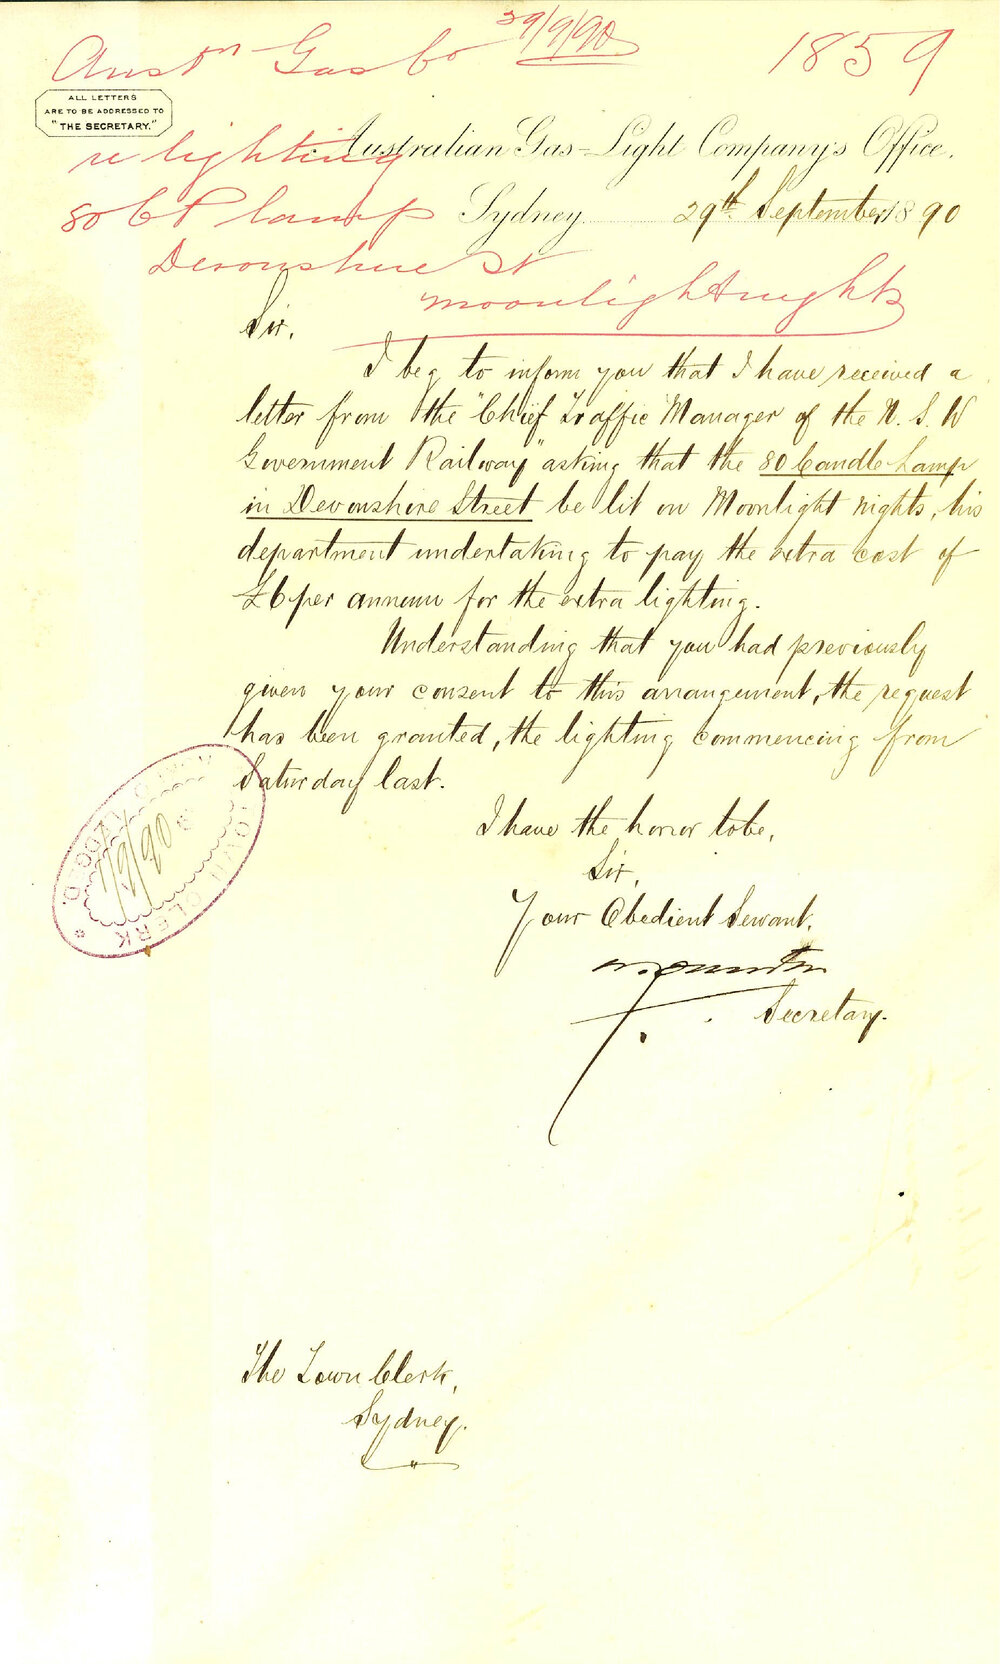 Austn Gas Co 29/9/90
1859
ALL LETTERS
ARE TO BE ADDRESSED TO
"THE SECRETARY."
re lighting
Australian Gas-Light Company's Office.
80 CP lamp
Sydney 29th September 1890
Devonshire St
moonlight nights
Sir,
I beg to inform you that I have received a
letter from the "Chief Traffic Manager of the N. S. W
Government Railway" asking that the 80 Candle Lamp
in Devonshire Street be lit on Moonlight nights, his
department undertaking to pay the extra cost of
£6 per annum for the extra lighting.
Understanding that you had previously
given your consent to this arrangement, the request
has been granted, the lighting commencing from
Saturday last.
I have the honor to be,
Sir,
Your Obedient Servant,
Secretary.
TOWN CLERK
/9/90
The Town Clerk,
Sydney.